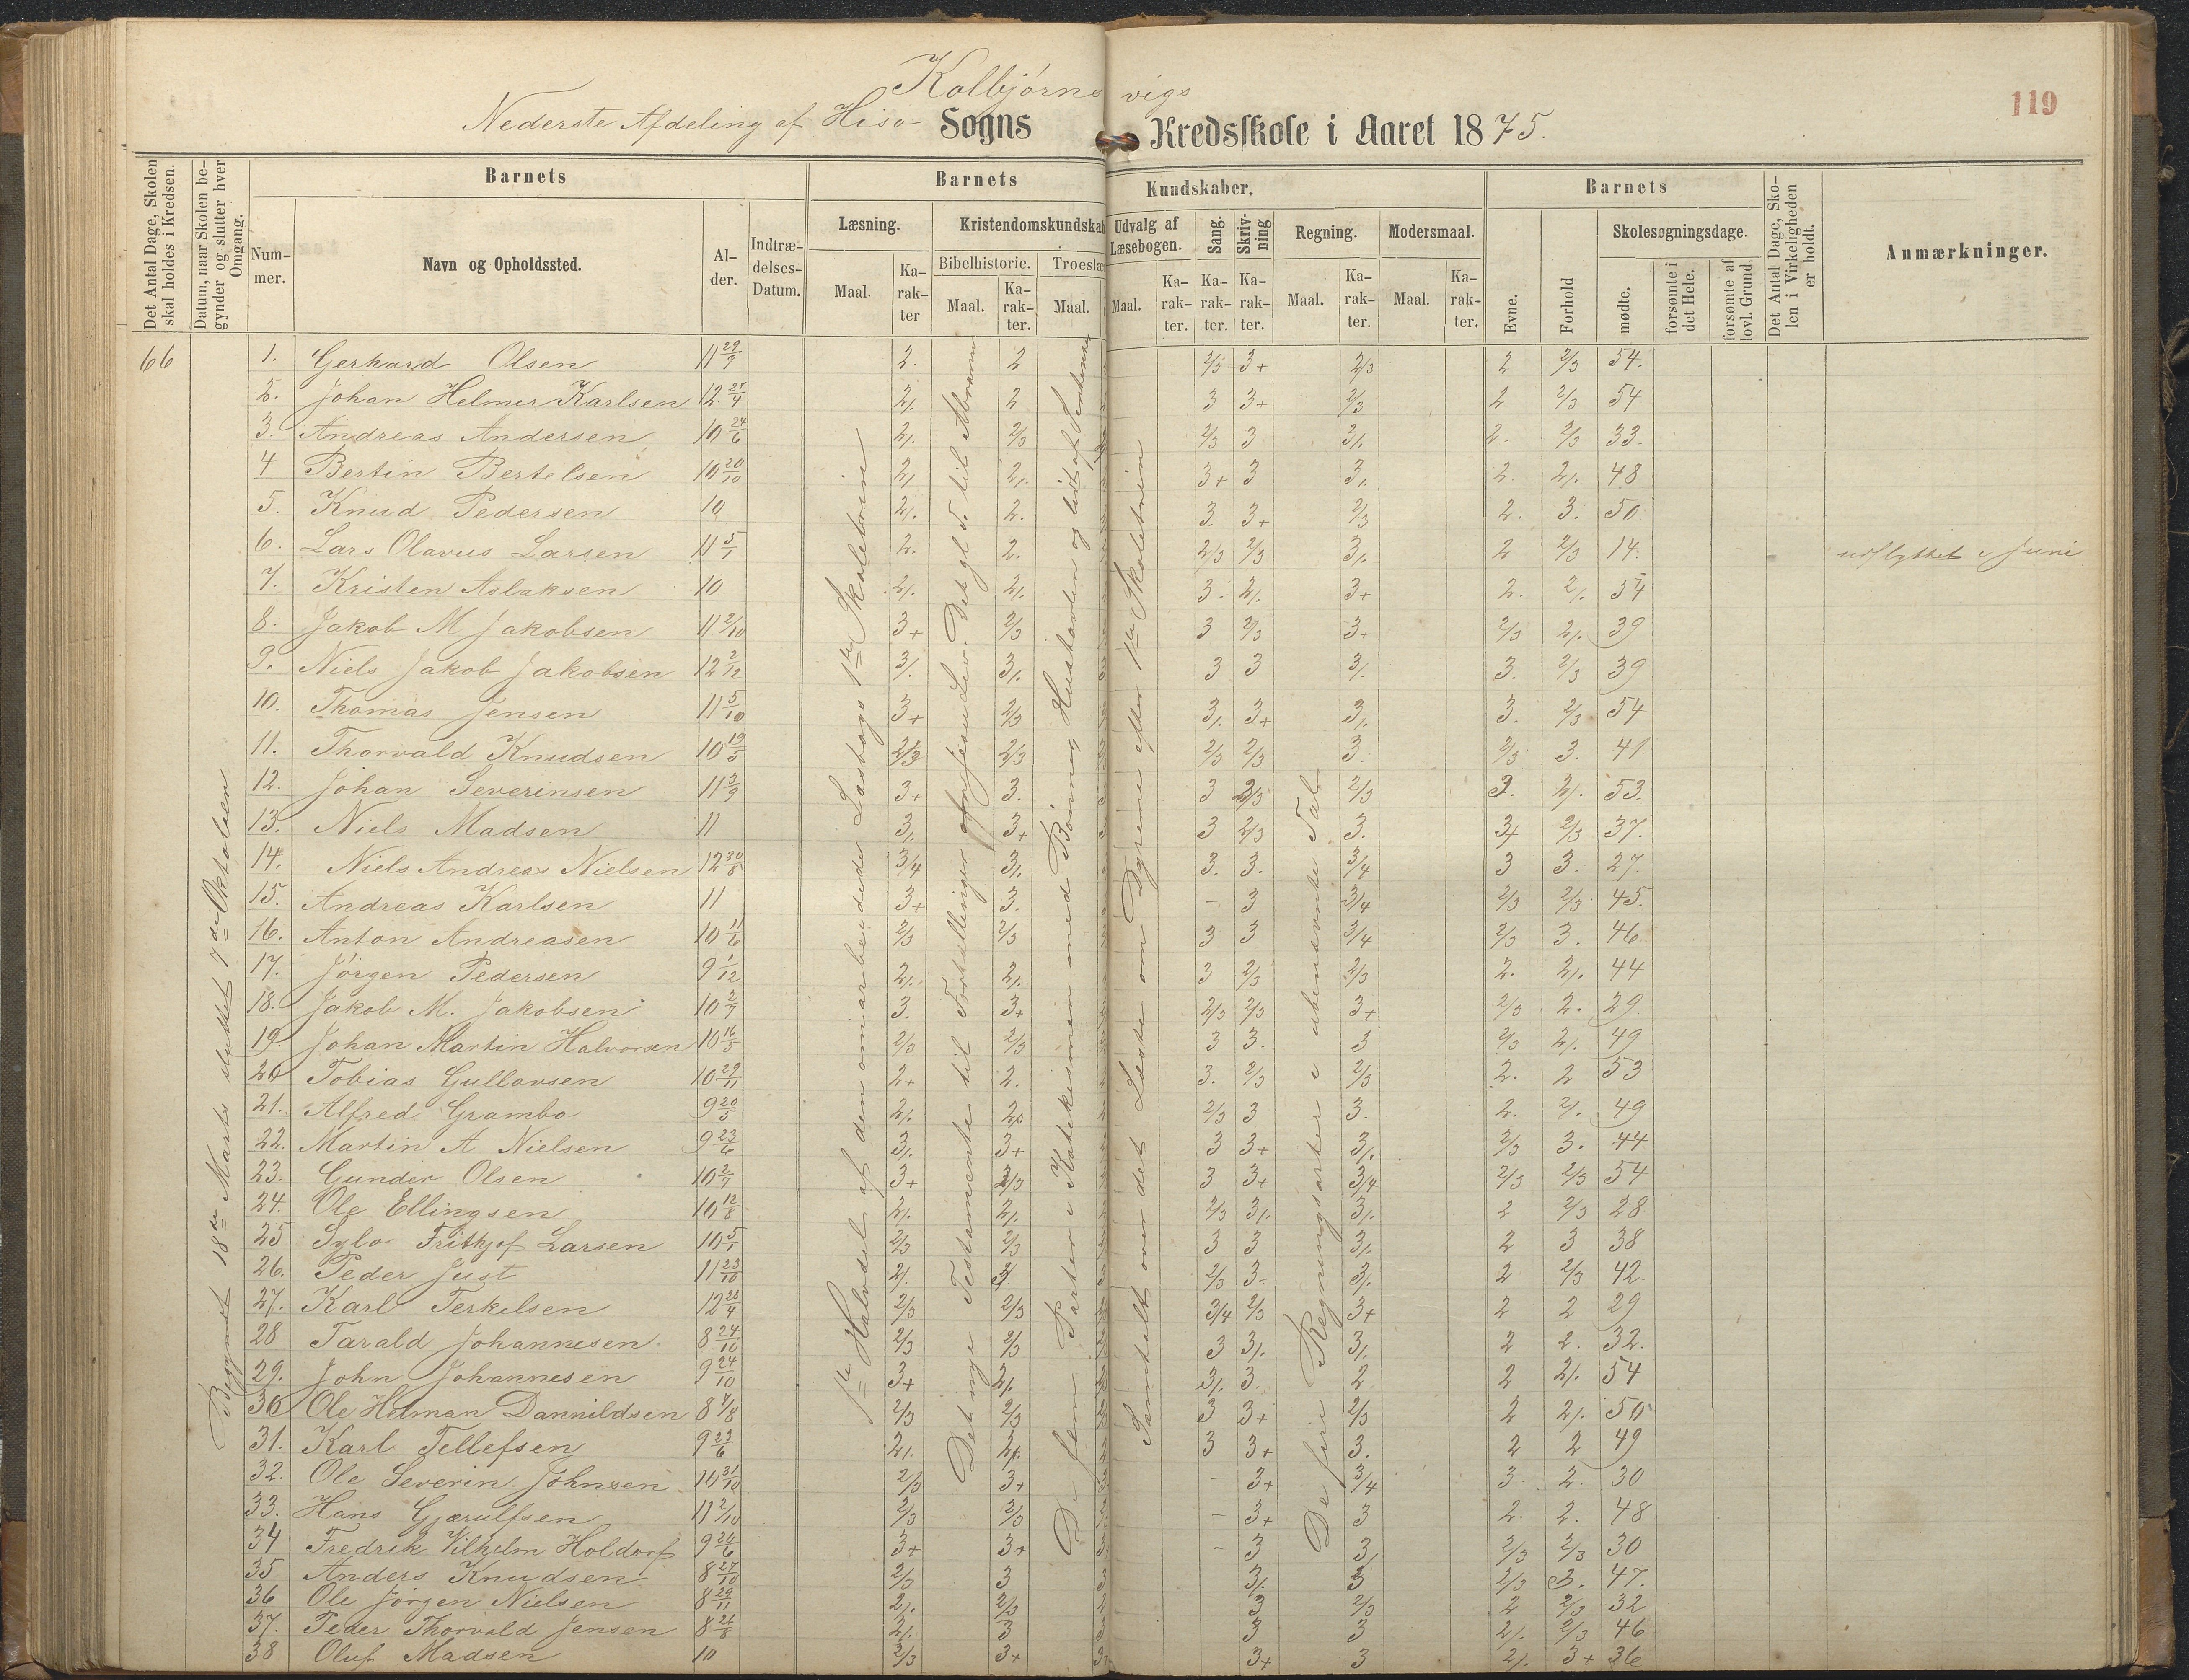 Kolbjørnsvigs
119
Nederste Afdeling af Hisø Sogns Kredsskole i Aaret 1875.
Det Antal Dage, Skolen skal holdes i Kredsen.
Datum, naar Skolen begynder og slutter hver Omgang.
Barnets
Nummer.
Navn og Opholdssted.
Alder.
Indtrædelses-Datum.
Barnets Kundskaber.
Læsning.
Maal.
Karakter
Kristendomskundskab
Bibelhistorie.
Maal.
Karakter.
Troeslæ
Maal.
Udvalg af Læsebogen.
Maal.
Karakter.
Sang.
Karakter.
Skrivning
Karakter.
Regning.
Maal.
Karakter.
Modersmaal.
Maal.
Karakter.
Barnets
Evne.
Forhold
Skolesøgningsdage.
mødte.
forsømte i det Hele.
forsømte af lovl. Grund.
Det Antal Dage, Skolen i Virkeligheden er holdt.
Anmærkninger.
66
Begyndt 18de Marts sluttet 7de Oktober
1ste Halvdel af den omarbeidede Læsebogs 1ste Skoletrin
Det nye Testamente til Fortællinger om Jesu Lev. Det gl. T. til Abraham
De fem Parter i Katekismen med Bønnen, Hustavlen og lidt af
Samtalt over det Læste om Dyrene efter 1ste Skoletrin
De fire Regningsarter i ubenævnte Tal
1. Gerhard Olsen 11 29/9 2. 2 2/3 3+ 2/3 2 2/3 54.
2. Johan Helmer Karlsen 12 25/4 2/. 2 3 3+ 2/3 2 2/3 54
3. Andreas Andersen 10 24/6 2/. 2/3 2/3 3 3/. 2. 2/3 33.
4 Bertin Bertelsen 10 20/10 2/. 2/. 3+ 3 3/. 2. 2/. 48
5. Knud Pedersen 10 2/. 2. 3. 3+ 2/3 2. 3. 50
6. Lars Olavus Larsen 11 5/1 2. 2. 2/3 2/3 3/. 2 2/3 14. udflyttet i Juni
7. Kristen Aslaksen 10 2/. 2/. 3. 2/. 3+ 2. 2/. 54
8. Jakob M Jakobsen 11 2/10 3+ 2/3 3 2/3 3+ 2/3 2/. 39
9. Niels Jakob Jakobsen 12 2/12 3/. 3/. 3 3 3/. 3. 2/3 39
10. Thomas Jensen 11 5/10 3+ 2/3 3/. 3+ 3/. 3. 2/3 54
11. Thorvald Knudsen 10 19/5 2/3 2/3 2/3 2/3 3. 2/3 3. 41.
12. Johan Severinsen 11 3/9 3+ 3. 3 2/3 2/3 3. 2/. 53.
13. Niels Madsen 11 3/. 3+ 3 2/3 3. 3+ 2/3 37.
14. Niels Andreas Nielsen 12 30/8 3/4 3/. 3. 3. 3/4 3 3. 27.
15. Andreas Karlsen 11 3+ 3. - 3 3/4 2/3 2/3 45.
16. Anton Andreasen 10 11/6 2/3 2/3 3 3 3/4 2/3 3. 46
17. Jørgen Pedersen 9 1/12 2/. 2/. 3 2/3 2/3 2. 2/. 44
18. Jakob M. Jakobsen 10 2/7 3. 3+ 2/3 2/3 3+ 2/3 2. 29.
19. Johan Martin Halvorsen 10 16/5 2/3 2/3 3 3. 3 2/3 2/. 49
20 Tobias Gullovsen 10 29/11 2+ 2. 3. 2/3 2/3 2. 2 53
21. Alfred Grambo 9 20/5 2/. 2/. 2/3 3 3. 2. 2/. 49
22. Martin A Nielsen 9 23/6 3/. 3+ 3 3+ 3/. 2/3 3. 44
23. Gunder Olsen 10 2/7 3+ 2/3 3 3+ 3/4 2/3 2/3 54
24. Ole Ellingsen 10 12/8 2/. 2/. 2/3 3/. 3/. 2 2/3 28
25 Sylo Frithjof Larsen 10 5/1 2/3 2/3 3 3 3/. 2 3 38
26. Peder Just 11 23/10 2/. 3/. 2/3 3- 3/. 2 2/3 42.
27. Karl Terkelsen 12 28/4 2/3 2/3 3/4 2/3 3+ 2 2 29
28 Tarald Johannesen. 8 24/10 2/3 2/3 3 3/. 3/. 2 2. 32.
29. John Johannesen 9 24/10 3+ 2/. 3/. 3. 2 2 2/. 54
30 Ole Helman Dannildsen 8 7/8 2/3 2/3 3 3+ 2/3 2 2/. 50
31. Karl Tellefsen 9 23/6 2/. 2/. 3 3+ 3. 2 2 49
32. Ole Severin Johnsen 10 31/10 2/3 3+ - 3+ 3/4 3. 2. 30
33. Hans Gjærulfsen 11 2/10 2/3 2/3 - 3+ 3 2. 2. 48
34 Fredrik Vilhelm Holdorf 9 20/6 3+ 3+ - 3 3/ 2/3 2/3 30
35 Anders Knudsen 8 27/10 2/3 3 3/. 3 2/3 3. 47.
36 Ole Jørgen Nielsen 8 29/11 2/. 2/3 3 2/3 2 2/3 32
37. Peder Thorvald Jensen 8 26/8 2/. 3 3 3 2/. 2/3 46
38 Oluf Madsen 10 2/3 3+ 3+ 3 2/. 3+ 36